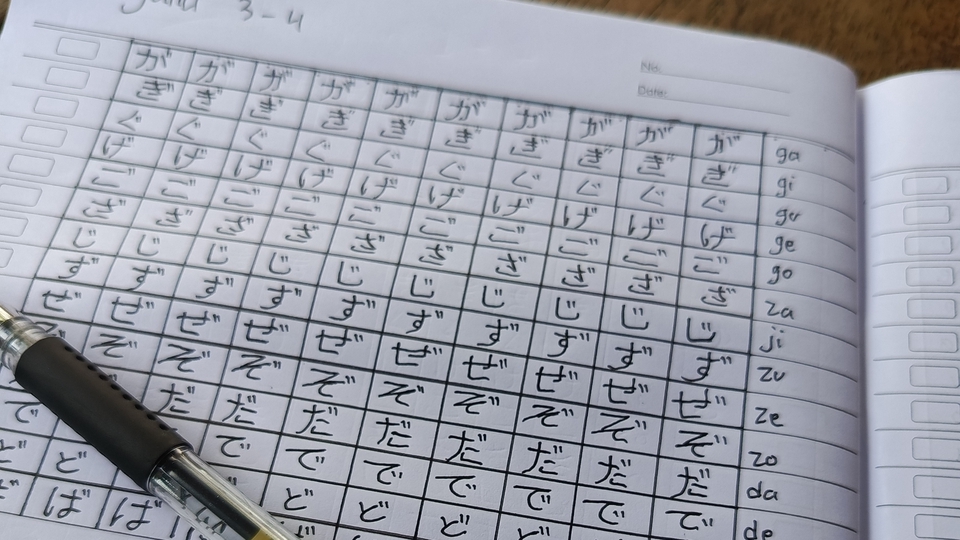 3-4
No.
Date:
が が が が が が が が が が ga
ぎ ぎ ぎ ぎ ぎ ぎ ぎ ぎ ぎ ぎ gi
ぐ ぐ ぐ ぐ ぐ ぐ ぐ ぐ ぐ ぐ gu
げ げ げ げ げ げ げ げ げ げ ge
ご ご ご ご ご ご ご ご ご ご go
ざ ざ ざ ざ ざ ざ ざ ざ ざ ざ za
じ じ じ じ じ じ じ じ じ じ ji
ず ず ず ず ず ず ず ず ず ず zu
ぜ ぜ ぜ ぜ ぜ ぜ ぜ ぜ ぜ ぜ ze
ぞ ぞ ぞ ぞ ぞ ぞ ぞ ぞ ぞ zo
だ だ だ だ だ だ だ だ da
で で で で で で で で de
ど ど ど ど ど ど
ば ば